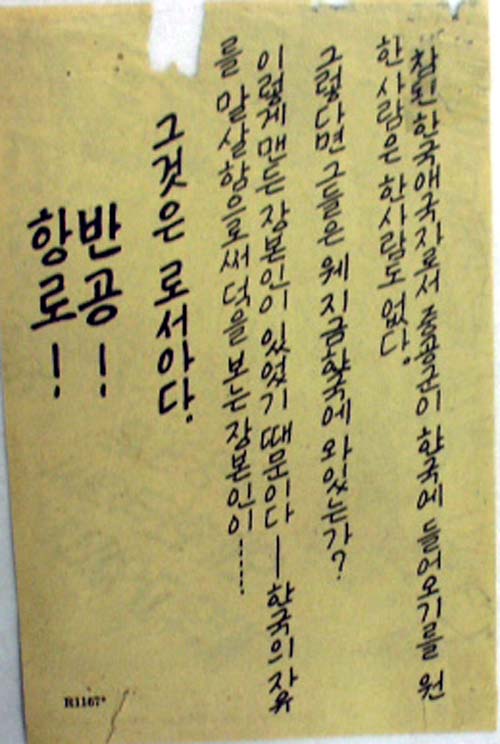 참된 한국애국자로서 중공군이 한국에 들어오기를 원
한 사람은 한사람도 없다.
그렇다면 그들은 웨 지금 한국에 와있는가?
이렇게 맨든 장본인이 있었기 때문이다 — 한국의 자유
를 말살함으로써 덕을 보는 장본인이......
그것은 로서아다.
반공!
항로!
R1167*